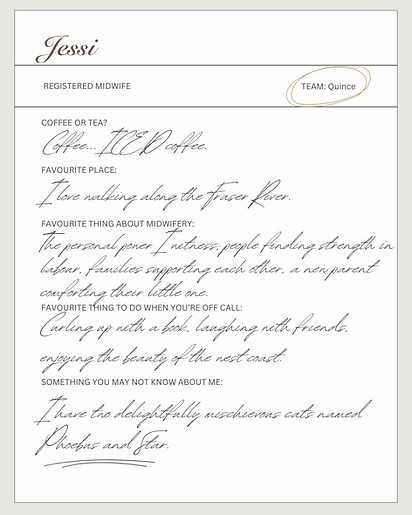 Jessi
REGISTERED MIDWIFE
TEAM: Quince
COFFEE OR TEA?
Coffee... ICED coffee.
FAVOURITE PLACE:
I love walking along the Fraser River.
FAVOURITE THING ABOUT MIDWIFERY:
The personal power I witness, people finding strength in
labour, families supporting each other, a new parent
comforting their little one.
FAVOURITE THING TO DO WHEN YOU'RE OFF CALL:
Curling up with a book, laughing with friends,
enjoying the beauty of the west coast.
SOMETHING YOU MAY NOT KNOW ABOUT ME:
I have two delightfully mischievous cats named
Phoebus and Star.